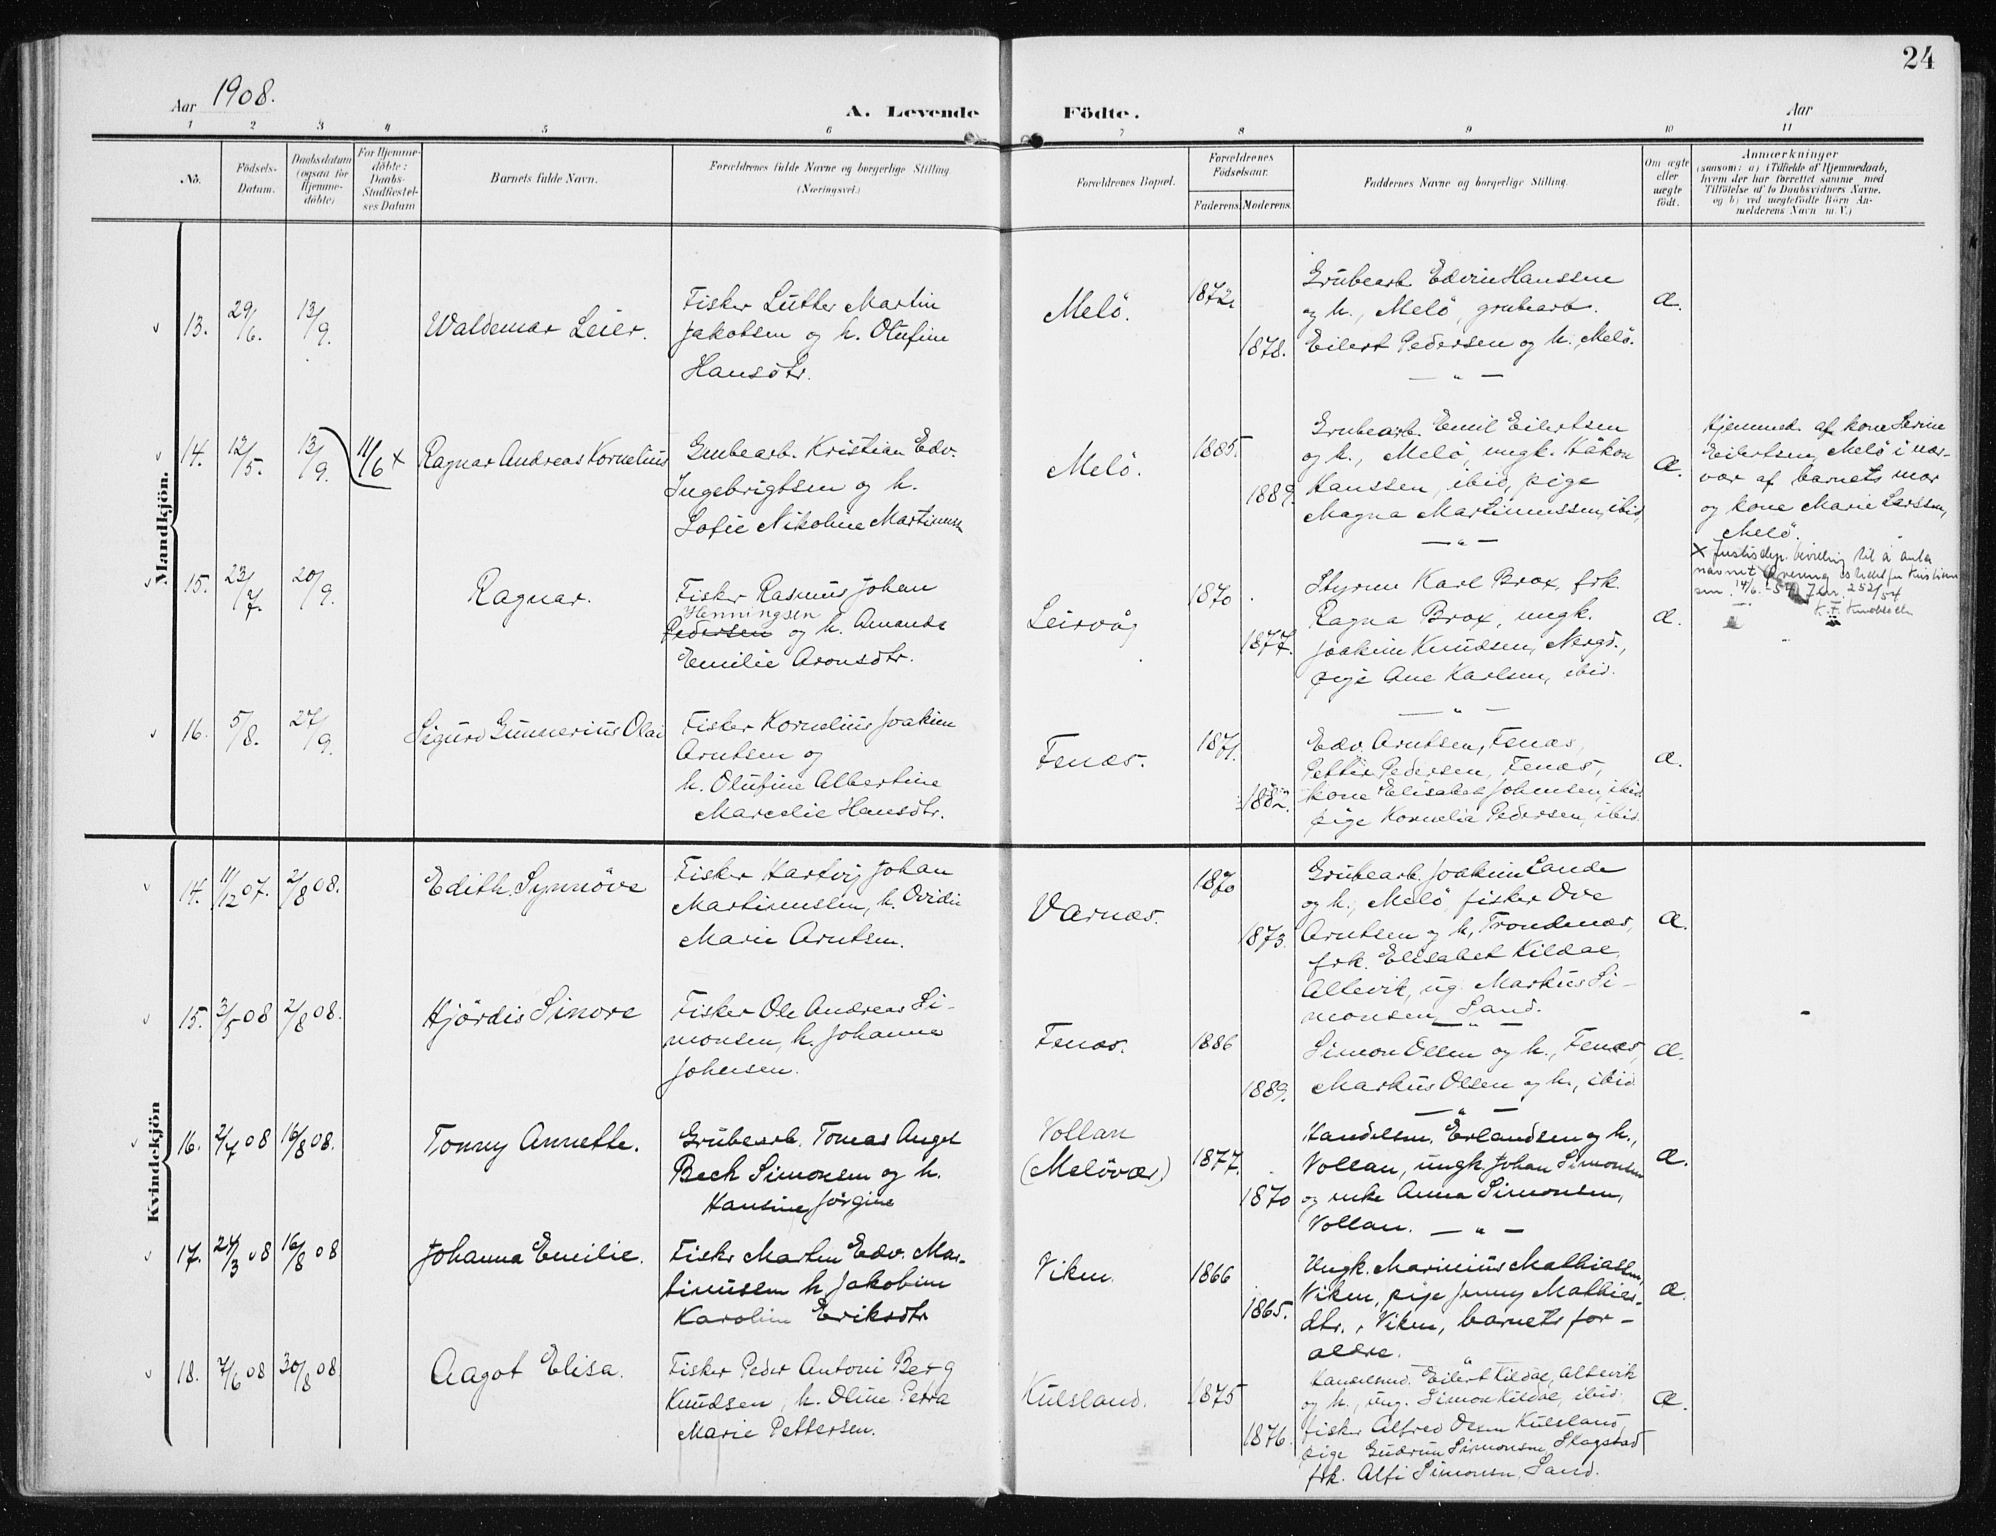 24
Aar 1908.
A. Levende Födte.
Aar
1 2 3 4 5 6 7 8 9 10 11
No.
Födsels-
Datum.
Daabsdatum
(ogsaa for
Hjemme-
döbte)
For Hjemme-
döbte:
Daabs-
Stadfæstel-
ses Datum
Barnets fulde Navn.
Forældrenes fulde Navne og borgerlige Stilling
(Næringsvei.)
Forældrenes Bopæl.
Forældrenes
Födselsaar.
Faderens Moderens.
Faddernes Navne og borgerlige Stilling.
Om ægte
eller
uægte
födt.
Anmærkninger
(saasom: a) i Tilfælde af Hjemmedaab,
hvem der har forrettet samme med
Tilföielse af to Daabsvidners Navne.
og b) ved uegtefödte Börn An-
melderens Navn m. V.)
Mandkjön.
13. 29/6. 13/9. Waldemar Leier.
Fisker Lutter Martin
Jakobsen og h. Olufine
Hansdtr.
Melö.
1872.
1878.
Grubearb. Edvin Hanssen
og h., Melö, grubearb.
Eilert Pedersen og h. Melö.
— " —
æ.
14. 12/5. 13/9. 11/6 x Ragnar Andreas Kornelius
Grubearb. Kristian Edv.
Ingebrigtsen og h.
Sofie Nikoline Martinussen
Melö.
1885.
1889.
Grubearb. Emil Eilertsen
og h., Melö, ungk. Håkon
Hanssen, ibid, pige
Magna Martinussen, ibid,
— " —
æ.
Hjemmed. af kone Serine
Eilertsen, Melö i nær-
vær af barnets mor
og kone Marie Larssen,
Melö.
X Justisdep. bevilling til å anta
navnet
14/6.-54 Jnr. 252/54
15. 23/7. 20/9. Ragnar.
Fisker Rasmus Johan
Henningsen
Pedersen og h. Amanda
Emilie Aronsdtr.
Leirvåg
1870
1877.
Styrm Karl Brox, frk.
Ragna Brox, ungk.
Joakim Knudsen, Nergd.,
pige Ane Karlsen, ibid.
— " —
æ.
16. 5/8. 27/9. Sigurd Gunnerius Olai
Fisker Kornelius Joakim
Arntsen og
h. Olufine Albertine
Marcelie Hansdtr.
Fenæs.
1871.
1882.
Edv. Arntsen, Fenæs,
Petter Pedersen, Fenæs,
kone Elisabet Johnsen, ibid.
pige Kornelia Pedersen, ibid.
æ.
Kvindekjön
14. 11/12 07. 2/8 08. Edith Synnöve
Fisker Hartvig Johan
Martinussen, h. Ovidie
Marie Arntsen.
Varnæs.
1870
1873.
Grubearb. Joakim Lande
og h., Melö, fisker Ove
Arntsen og h, Trondenæs,
frk. Elisabet Kildal,
Altevik, ug. Markus Si-
monsen, Sand.
— " —
æ.
15. 3/5 08 2/8 08. Hjördis Sinore
Fisker Ole Andreas Si-
monsen, h. Johanna
Johnsen.
Fenæs.
1886
1889.
Simon Olsen og h., Fenæs,
Markus Olsen og h., ibid
— " —
æ.
16. 2/7 08 16/8 08. Tonny Annette.
Grubearb. Tomas Angel
Bech Simonsen og h.
Hansine Jörgine
Vollan
(Melövær)
1877.
1870
Handelsm. Erlandsen og h.,
Vollan, ungk. Johan Simonsen
og enke Anna Simonsen,
Vollan. — " —
æ.
17. 24/3 08 16/8 08 Johanna Emilie.
Fisker Marten Edv. Mar-
tinussen h. Jakobine
Karoline Eriksdtr.
Viken.
1866
1865.
Ungk. Marinius Mathiassen,
Viken, pige Jenny Mathias-
dtr., Viken, barnets for-
ældre.
— " —
æ.
18. 7/6 08 30/8 08 Aagot Elisa.
Fisker Peder Antoni Berg
Knudsen, h. Oline Petra
Marie Pettersen.
Kulsland.
1875
1876.
Handelsmd. Eilert Kildal, Altevik
og h., ung. Simon Kildal, ibid,
fisker Alfred Olsen Kulsland,
pige Gudrun Simonsen, Skogstad
frk. Alfi Simonsen, Sand.
æ.